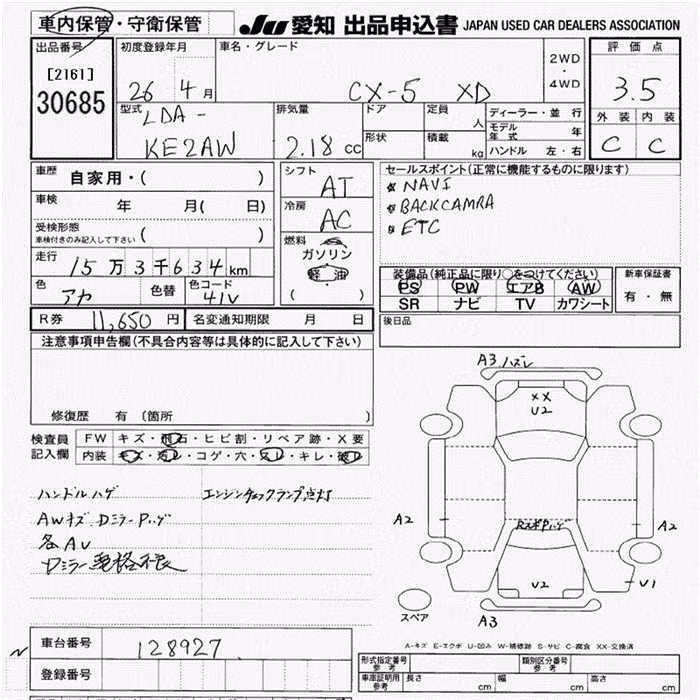 車内保管・守衛保管 JU 愛知 出品申込書 JAPAN USED CAR DEALERS ASSOCIATION
出品番号 初度登録年月 車名・グレード 2WD・4WD 評価点
[2161] 26 4月 CX-5 XD 3.5
30685
型式 排気量 ドア 定員 人 ディーラー・並行 外装 内装
LDA- 形状 積載 kg モデル年式 年 C C
KE2AW 2.18 cc ハンドル 左・右
車歴 自家用・( ) シフト AT セールスポイント(正常に機能するものに限ります)
車検 年 月( 日) 冷房 AC NAVI
受検形態 ( ) BACKCAMRA
車検付きのみ記入して下さい 燃料 ETC
走行 15万3千634km ガソリン
軽油
( )
色 アカ 色替 色コード 41V
装備品(純正品に限り○をつけてください) 新車保証書
PS PW エアB AW 有・無
SR ナビ TV カワシート
R券 11,650円 名変通知期限 月 日 後日品
注意事項申告欄(不具合内容等は具体的に記入して下さい)
修復歴 有(箇所
検査員 FW キズ・飛石・ヒビ割・リペア跡・X要
記入欄 内装 キズ・汚レ・コゲ・穴・スレ・キレ・破レ
ハンドルハゲ エンジンチェックランプ点灯
AWキズ DミラーPハゲ
各AU
Dミラー 格不良
A3 ハズレ
XX
U2
A2
RスポPハゲ
A2
U2
U1
スペア
A3
A-キズ E-エクボ U-凹み W-補修跡 S-サビ C-腐食 XX-交換済
車台番号 128927
登録番号
型式指定番号 参考 類別区分番号 参考
車庫証明用 参考 長さ cm 幅 cm 高さ cm